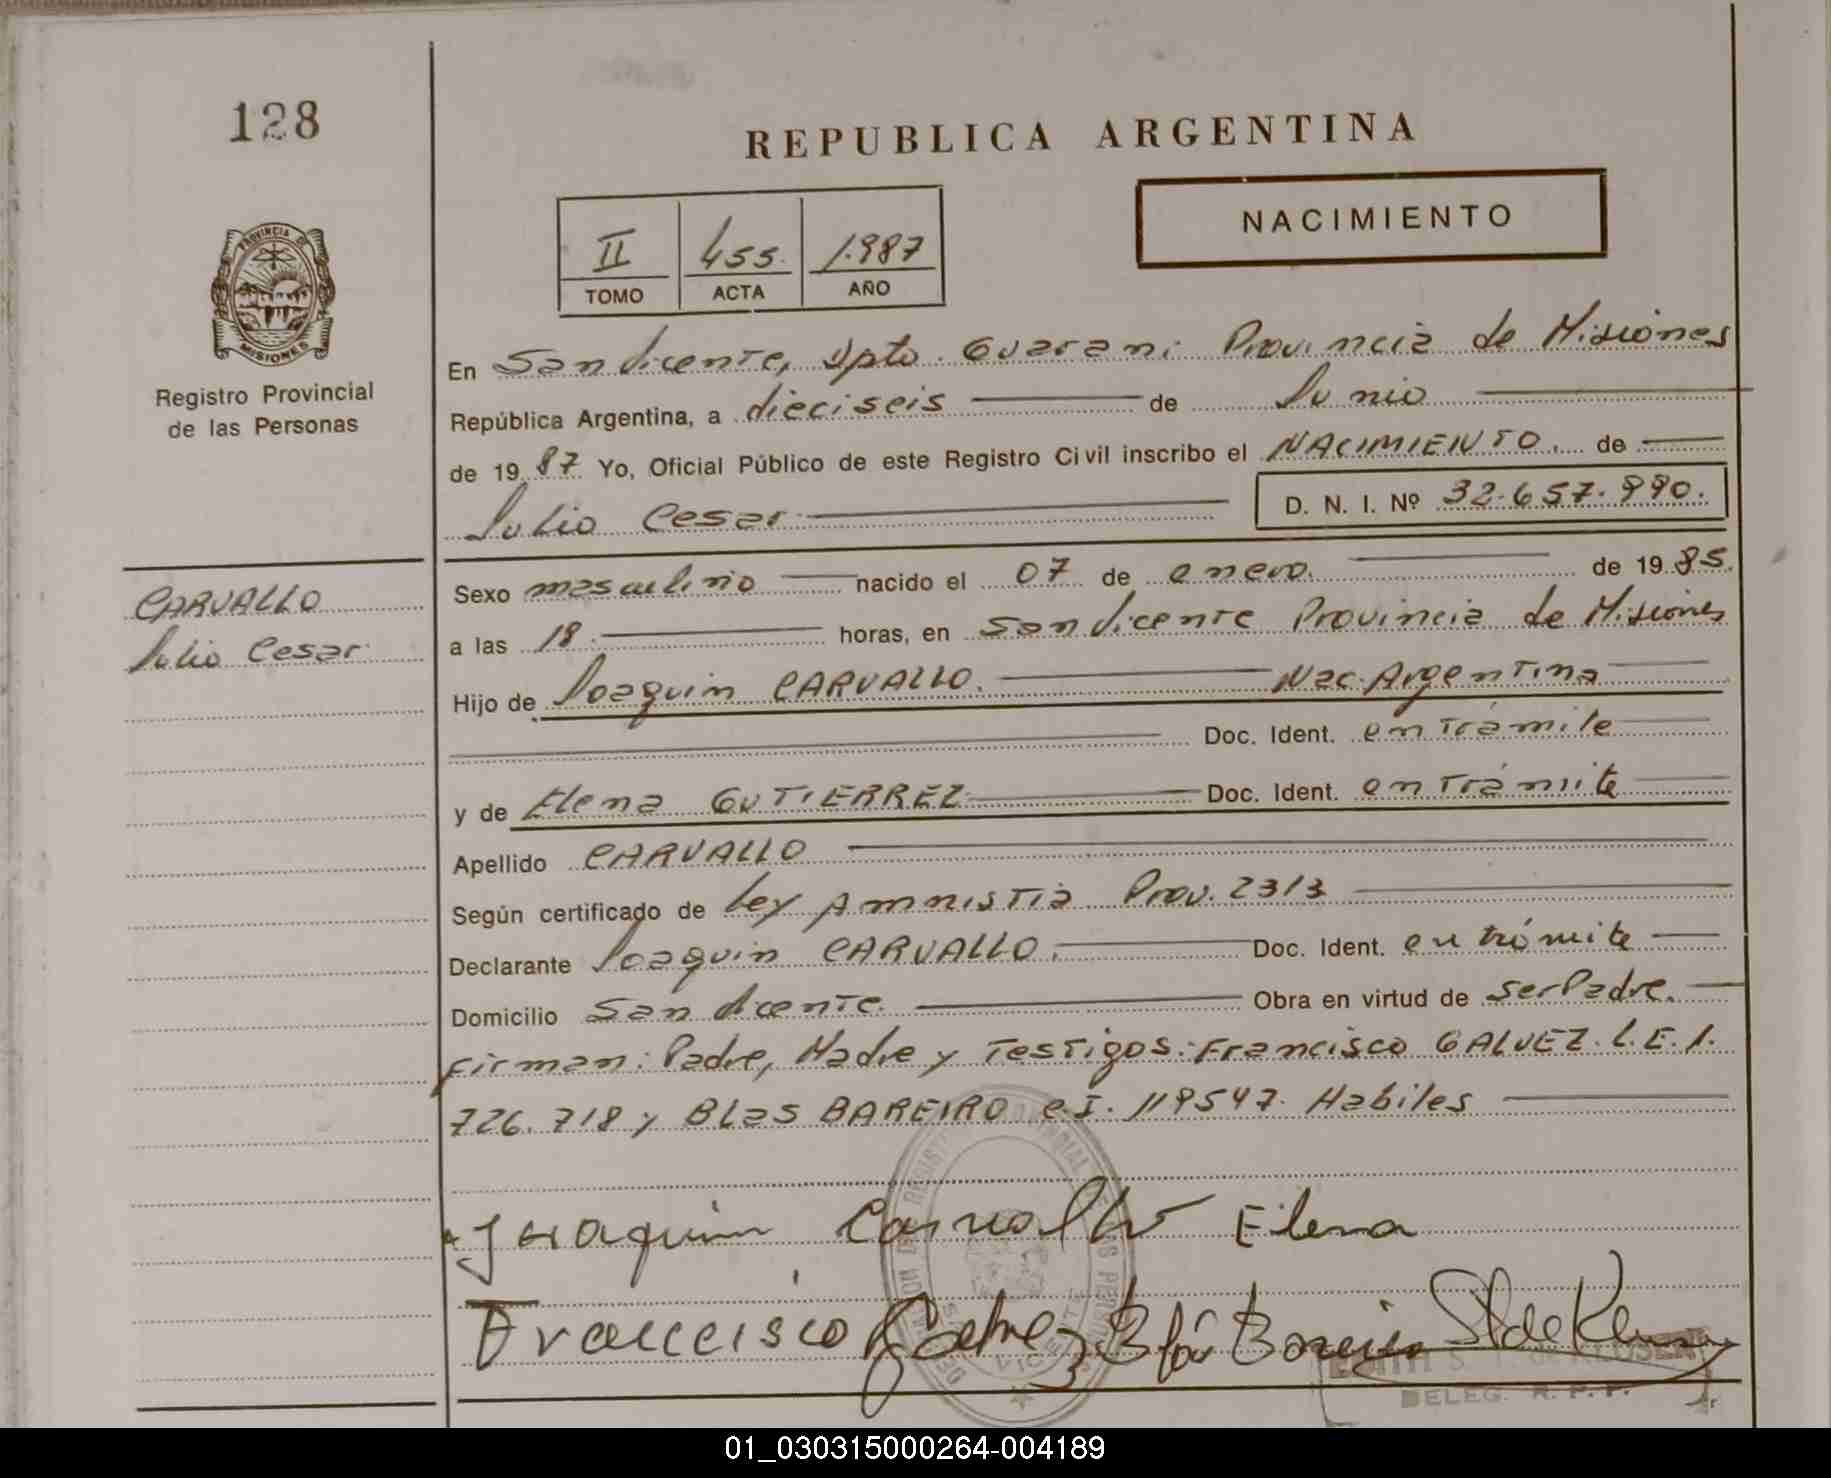 128
REPUBLICA ARGENTINA
NACIMIENTO
II 455. 1.987
TOMO ACTA AÑO
PROVINCIA DE
MISIONES
Registro Provincial
de las Personas
En San Vicente, Dpto. Guarani Provincia de Misiones
República Argentina, a dieciseis de Junio
de 19 87 Yo, Oficial Público de este Registro Civil inscribo el NACIMIENTO. de
Julio Cesar D. N. I. Nº 32.657.990.
CARVALLO
Julio Cesar
Sexo masculino nacido el 07 de enero. de 19 85.
a las 18. horas, en San Vicente Provincia de Misiones
Hijo de Joaquin CARVALLO. Nac. Argentina
Doc. Ident. en trámite
y de Elena GUTIERREZ Doc. Ident. en trámite
Apellido CARVALLO
Según certificado de Ley Amnistia Prov. 2313
Declarante Joaquin CARVALLO. Doc. Ident. en trámite
Domicilio San Vicente. Obra en virtud de ser Padre.
Firman: Padre, Madre y Testigos: Francisco GALVEZ. L.E. 1.
726.718 y Blas BAREIRO C.I. 119547. Habiles
Joaquim Carvallo Elena
Francisco Galvez Blas Bareiro
S. T. de KLUSENER
DELEG. R. P. P.
01_030315000264-004189